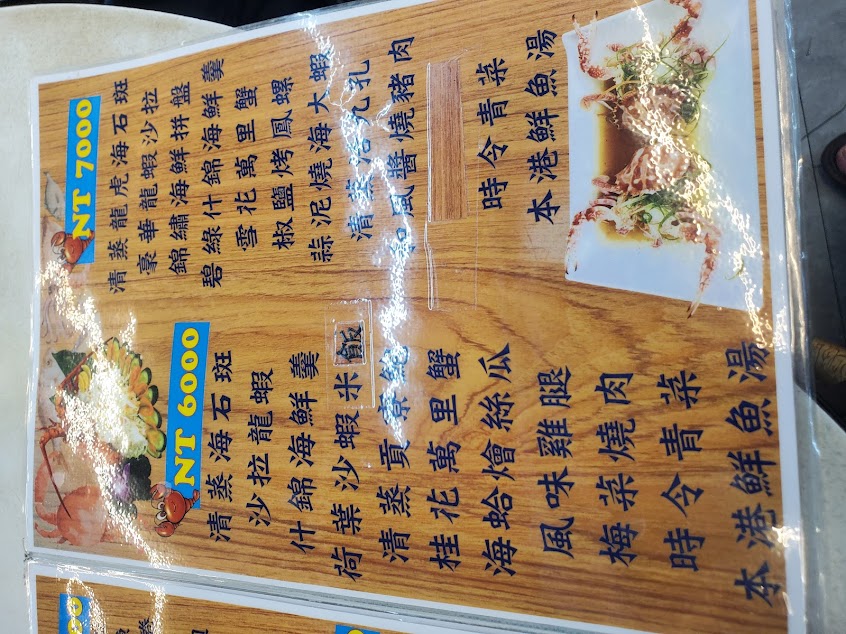 NT 7000
清蒸龍虎海石斑
豪華龍蝦沙拉
錦繡海鮮拼盤
碧綠什錦海鮮羹
雪花萬里蟹
椒鹽烤鳳螺
蒜泥燒海大蝦
清蒸活九孔
和風醬燒豬肉
時令青菜
本港鮮魚湯
NT 6000
清蒸海石斑
沙拉龍蝦
什錦海鮮羹
荷葉沙蝦米飯
清蒸貢寮鮑
桂花萬里蟹
海蛤燴絲瓜
風味雞腿
梅菜燒肉
時令青菜
本港鮮魚湯